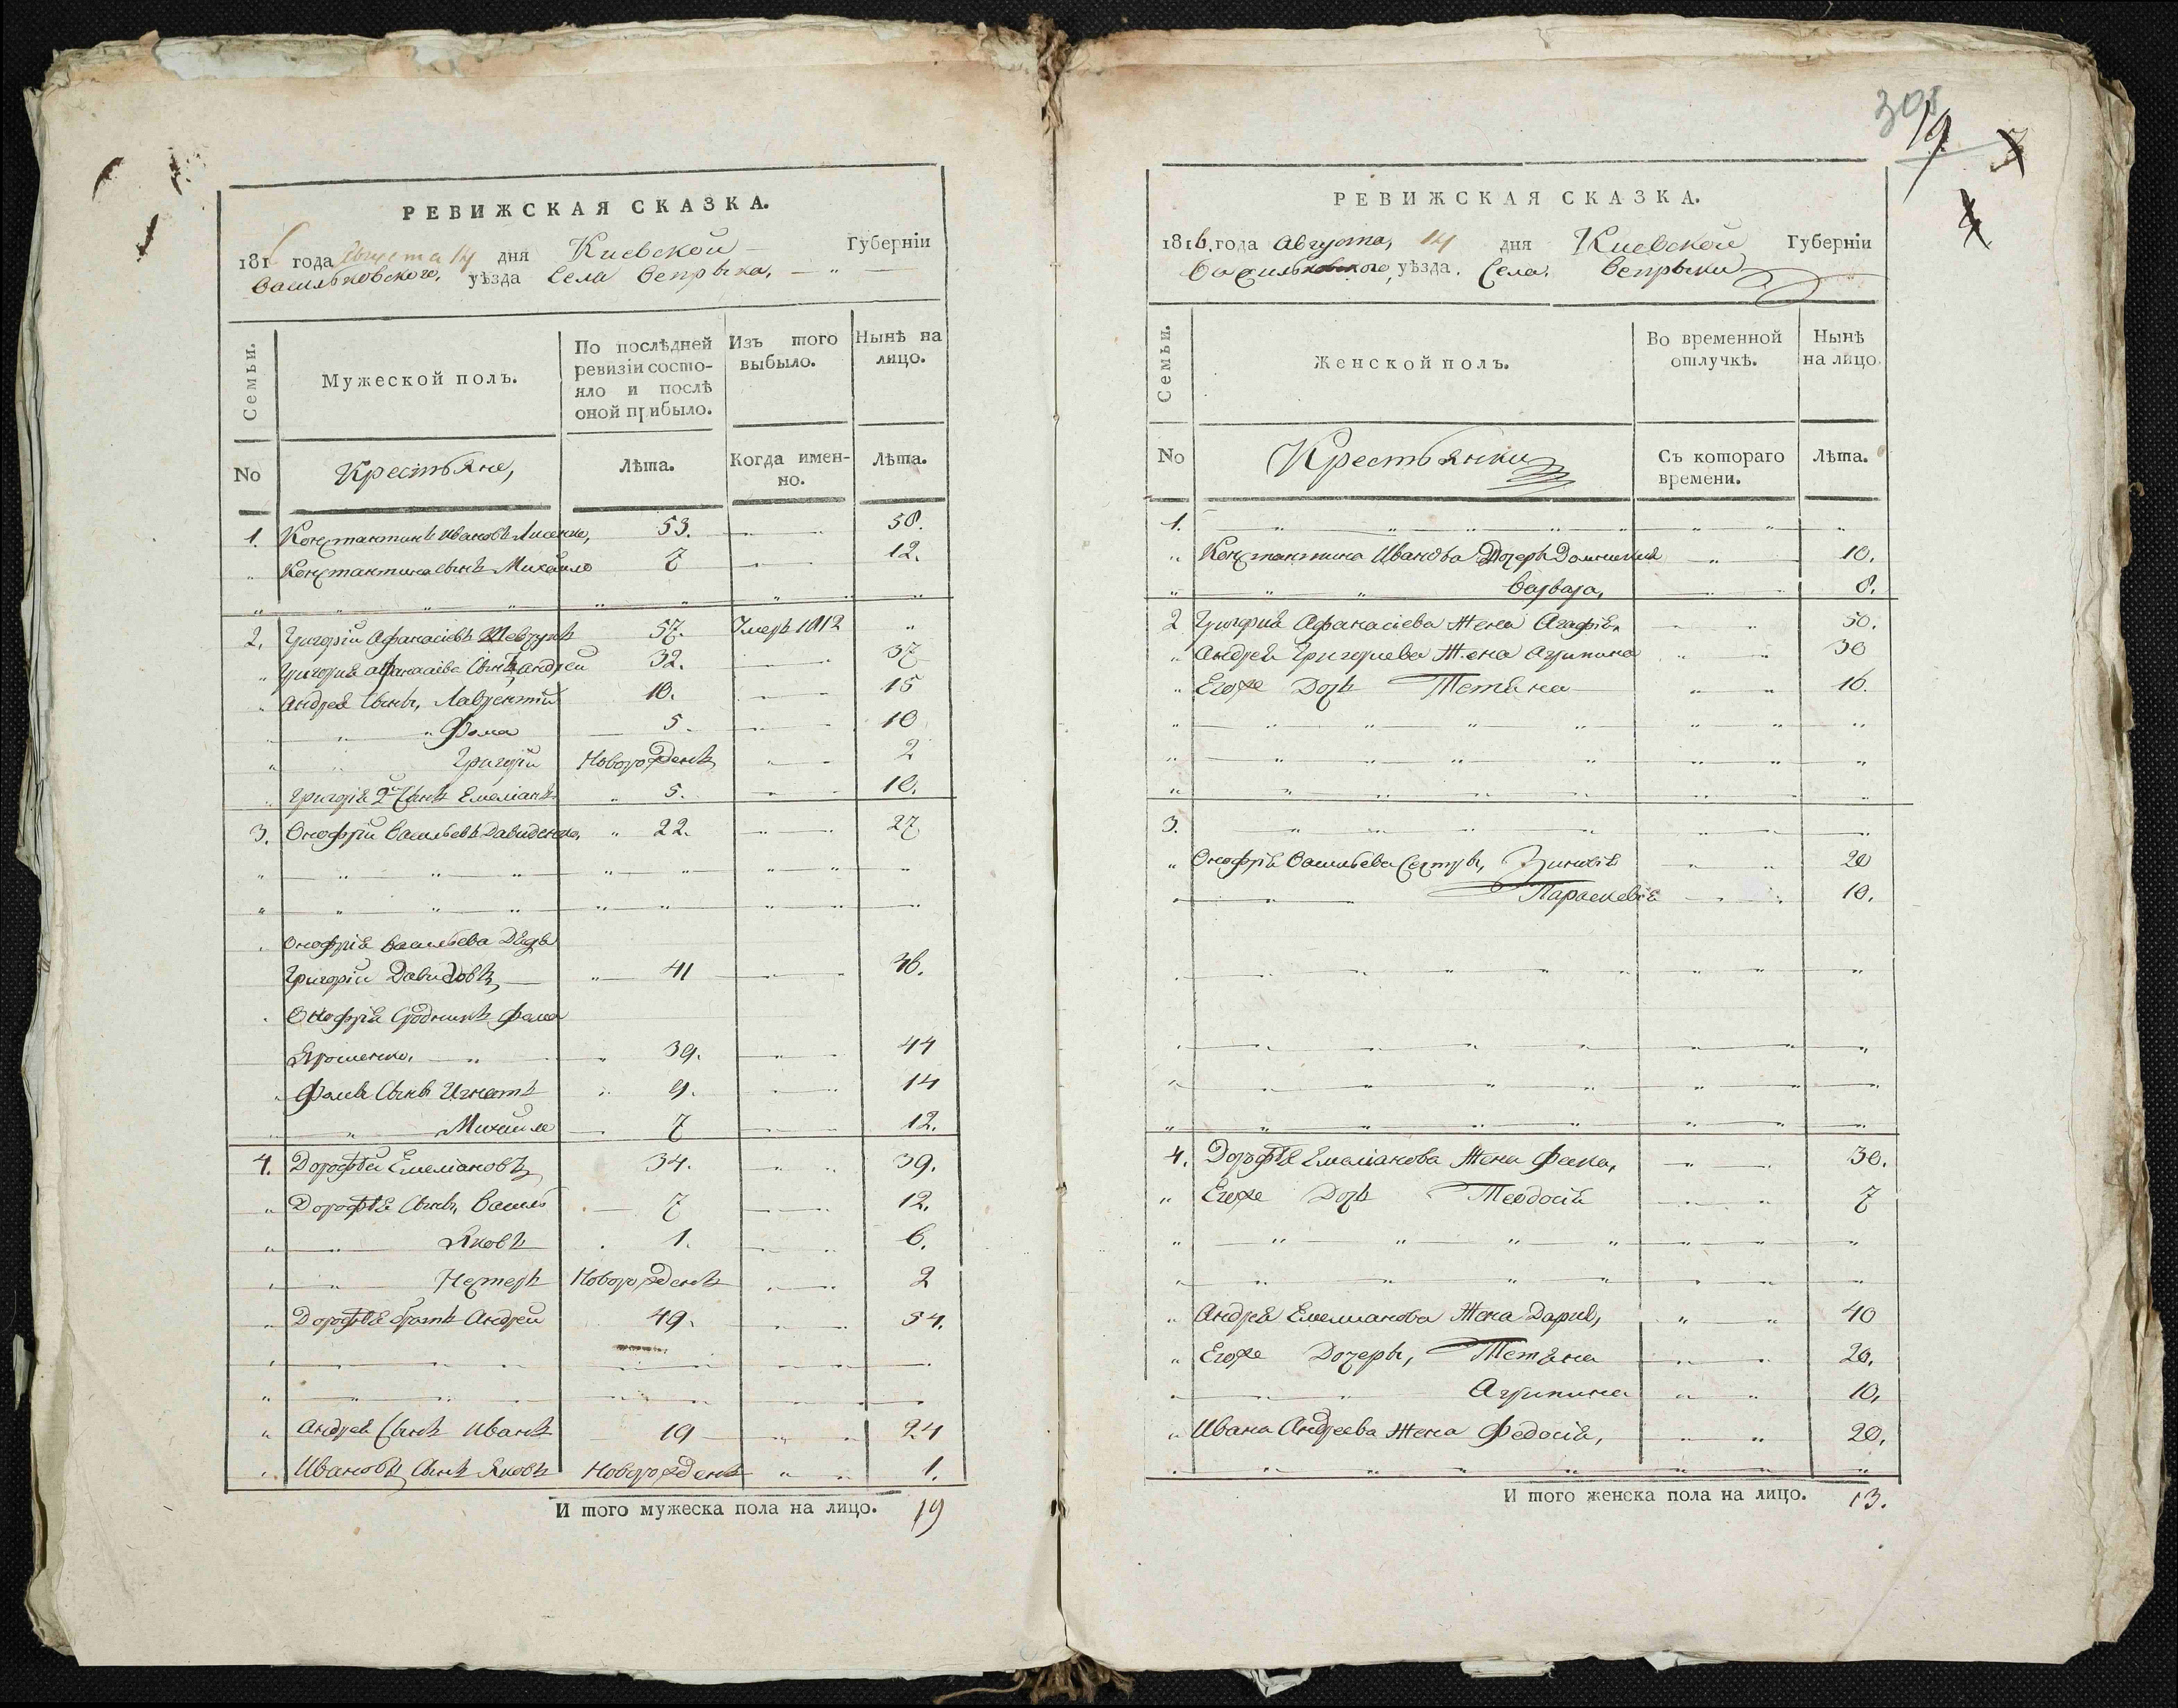 РЕВИЖСКАЯ СКАЗКА.
181 года Августа 14 дня Киевской Губерніи
Васильковского, уѣзда Села Вепрыка,
Семьи.
Мужеской полъ.
По послѣдней ревизіи состо-
яло и послѣ
оной прибыло.
Изъ того
выбыло.
Нынѣ на
лицо.
No
Крестьяне,
Лѣта.
Когда имен-
но.
Лѣта.
1. Константинъ Ивановъ Лисенко, 53. 58.
Константина сынъ Михайло 7 12.
2. Григорій Афанасіевъ Шевчукъ 57. Умеръ 1812
Григорія Афанасіева Сынъ Андрей 32. 37
Андрея Сынъ, Лаврентій 10. 15
Фома 5. 10
Григорій Новорожденъ 2
Григорія 2й Сынъ Емеліанъ 5. 10.
3. Онофрій Васильевъ Давиденко, 22. 27
Онофрія Васильева Дядя
Григорій Давидовъ, 41 46.
Онофрія Сродникъ Фома
Ярошенко, 39. 44
Фомы Сынъ Игнатъ 9. 14
Михайло 7 12.
4. Дорофѣй Емеліановъ 34. 39.
Дорофѣя Сынъ, Василь 7 12.
Яковъ 1. 6.
Нестеръ Новорожденъ 2
Дорофѣя братъ Андрей 49. 54.
Андрея Сынъ Иванъ 19 24
Ивановъ Сынъ Яковъ Новорожденъ 1.
И того мужеска пола на лицо. 19
301
19
РЕВИЖСКАЯ СКАЗКА.
1816. года Августа, 14 дня Киевской Губерніи
Васильковского, уѣзда. Села. Вепрыка
Семьи.
Женской полъ.
Во временной
отлучкѣ.
Нынѣ
на лицо.
No
Крестьянки
Съ котораго
времени.
Лѣта.
1.
Константина Иванова Дочерь Домникия 10.
Варвара, 8.
2 Григорія Афанасіева Жена Агафія, 50.
Андрея Григориева Жена Агрипина 30
Егоже Дочь Тетяна 16.
3.
Онофрія Васильева Сестры, Зиновія 20
Параскевія 10.
4. Дорофѣя Емеліанова Жена Фекла, 30.
Егоже Дочь Теодосія 7
Андрея Емелианова Жена Дарія, 40
Егоже Дочерь, Тетяна 20.
Агрипина 10,
Ивана Андреева Жена Федосія, 20,
И того женска пола на лицо. 13.